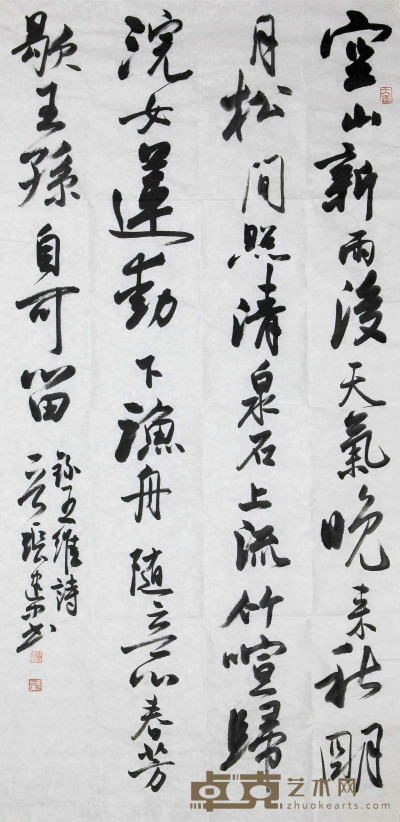 空山新雨後天氣晚来秋明
月松間照清泉石上流竹喧歸
浣女蓮動下漁舟随意春芳
歇王孫自可留
錄王維詩
書
卓克艺术网
zhuokearts.com